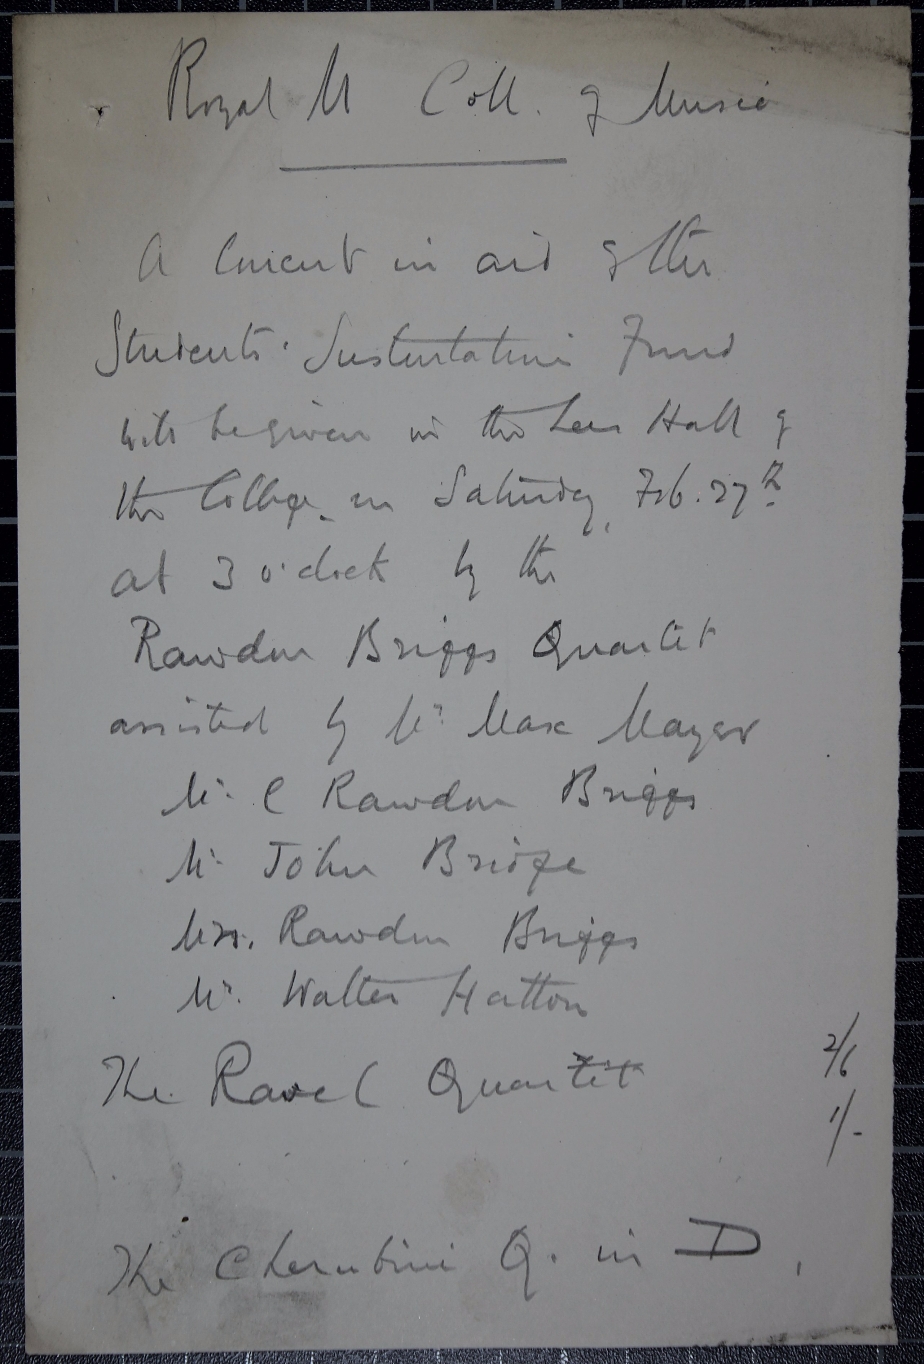 Royal M Coll. of Music
A Concert in aid of the
Students' Sustentation Fund
will be given in the Lees Hall of
the College on Saturday, Feb. 27th
at 3 o'clock by the
Rawdon Briggs Quartet
assisted by Mr Max Mayer
Mr. C Rawdon Briggs
Mr. John Bridge
Mrs. Rawdon Briggs
Mr. Walter Hatton
The Ravel Quartet
2/6
1/-
The Cherubini Q. in D,